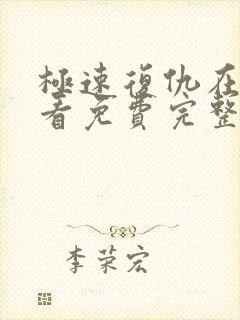 極速復仇在
看免費完整
李荣宏